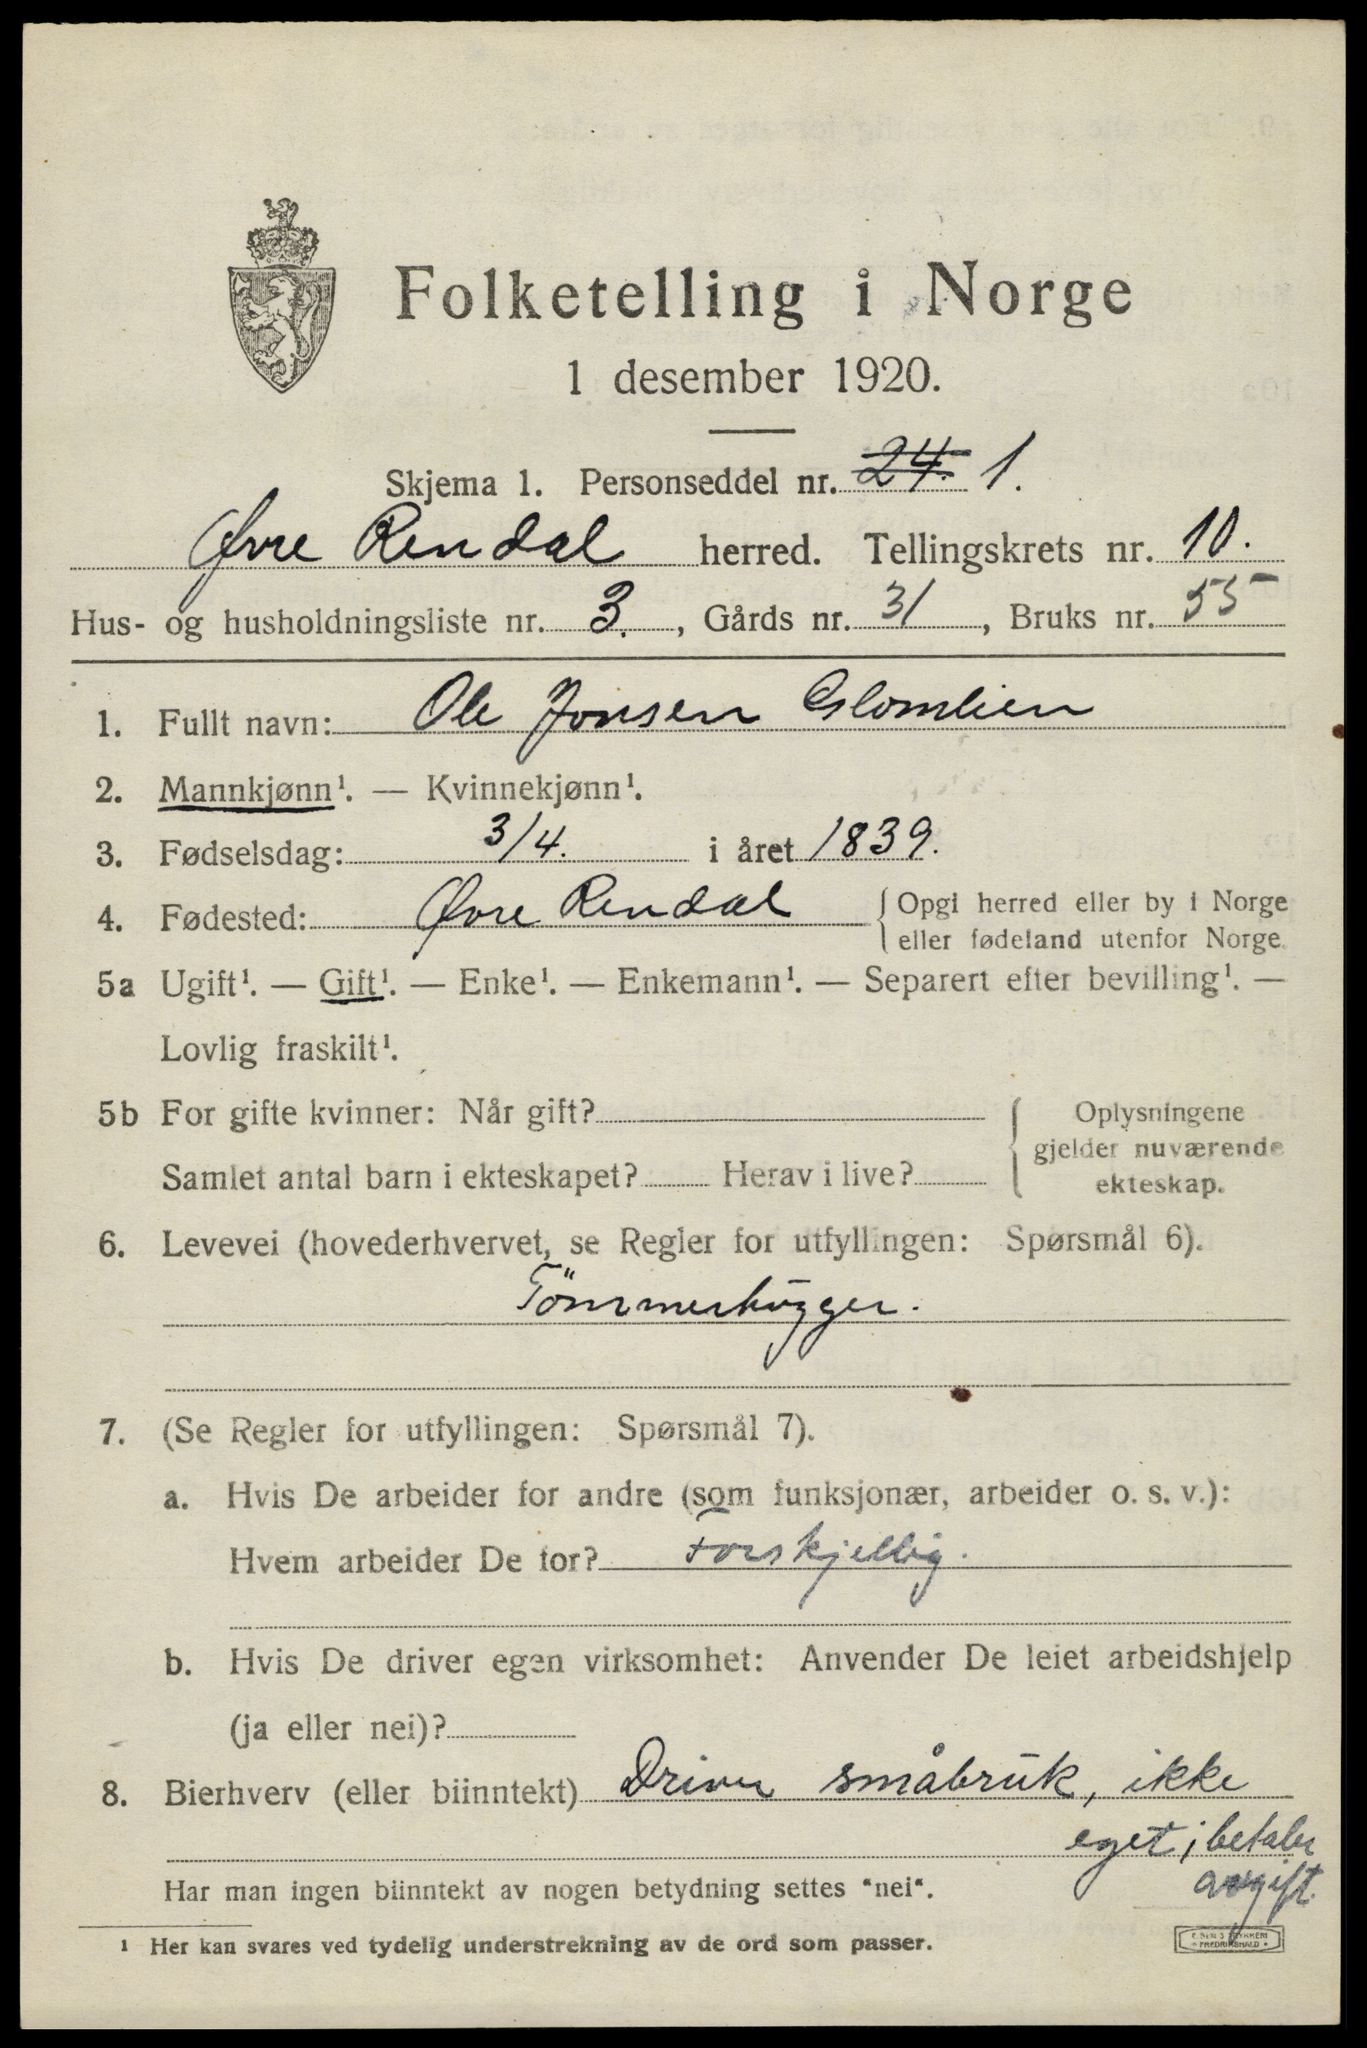 Folketelling i Norge
1 desember 1920.
Skjema 1. Personseddel nr. 24. 1.
Øvre Rendal herred. Tellingskrets nr. 10.
Hus- og husholdningsliste nr. 3., Gårds nr. 31, Bruks nr. 55
1. Fullt navn: Ole Jonsen Glomlien
2. Mannkjønn¹. — Kvinnekjønn¹.
3. Fødselsdag: 3/4. i året 1839.
4. Fødested: Øvre Rendal {Opgi herred eller by i Norge
eller fødeland utenfor Norge.
5a Ugift¹. — Gift¹. — Enke¹. — Enkemann¹. — Separert efter bevilling¹. —
Lovlig fraskilt¹.
5b For gifte kvinner: Når gift?
Samlet antal barn i ekteskapet? Herav i live?
{Oplysningene
gjelder nuværende
ekteskap.
6. Levevei (hovederhvervet, se Regler for utfyllingen: Spørsmål 6).
Tömmerhugger.
7. (Se Regler for utfyllingen: Spørsmål 7).
a. Hvis De arbeider for andre (som funksjonær, arbeider o. s. v.):
Hvem arbeider De for? Forskjellig.
b. Hvis De driver egen virksomhet: Anvender De leiet arbeidshjelp
(ja eller nei)?
8. Bierhverv (eller biinntekt) Driver småbruk, ikke
eget; betaler
avgift.
Har man ingen biinntekt av nogen betydning settes "nei".
¹ Her kan svares ved tydelig understrekning av de ord som passer.